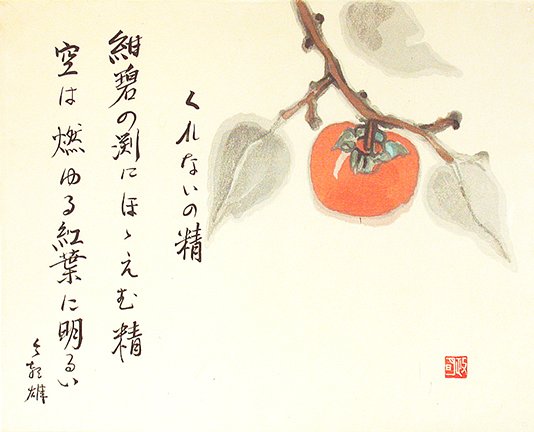 くれないの精
紺碧の渕にほゝえむ精
空は燃ゆる紅葉に明るい
雄